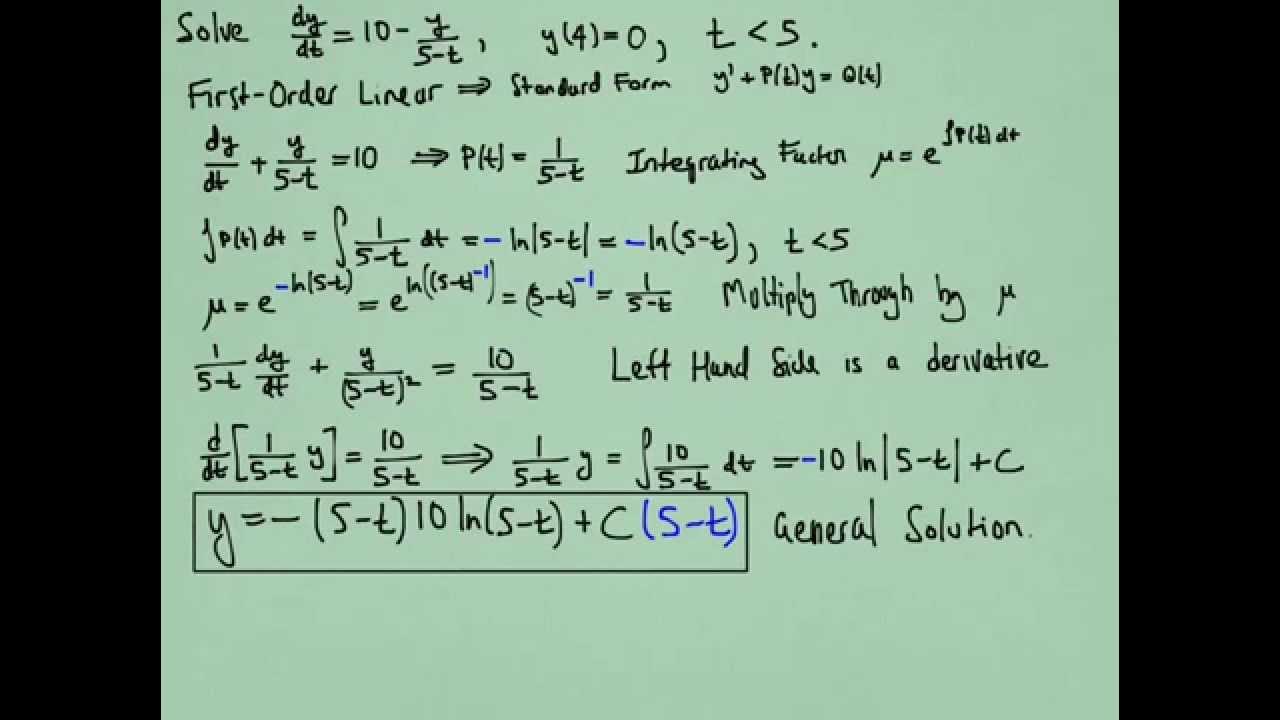 Solve dy/dt = 10 - y/(5-t), y(4)=0, t < 5.
First-Order Linear ⇒ Standard Form y' + P(t)y = Q(t)
dy/dt + y/(5-t) = 10 ⇒ P(t) = 1/(5-t) Integrating Factor μ = e^(∫P(t)dt)
∫P(t)dt = ∫ 1/(5-t) dt = -ln|5-t| = -ln(5-t), t<5
μ = e^(-ln(5-t)) = e^(ln((5-t)^-1)) = (5-t)^-1 = 1/(5-t) Multiply Through by μ
1/(5-t) dy/dt + y/(5-t)² = 10/(5-t) Left Hand Side is a derivative
d/dt[1/(5-t) y] = 10/(5-t) ⇒ 1/(5-t) y = ∫ 10/(5-t) dt = -10 ln|5-t| + C
y = -(5-t)10 ln(5-t) + C(5-t) General Solution.